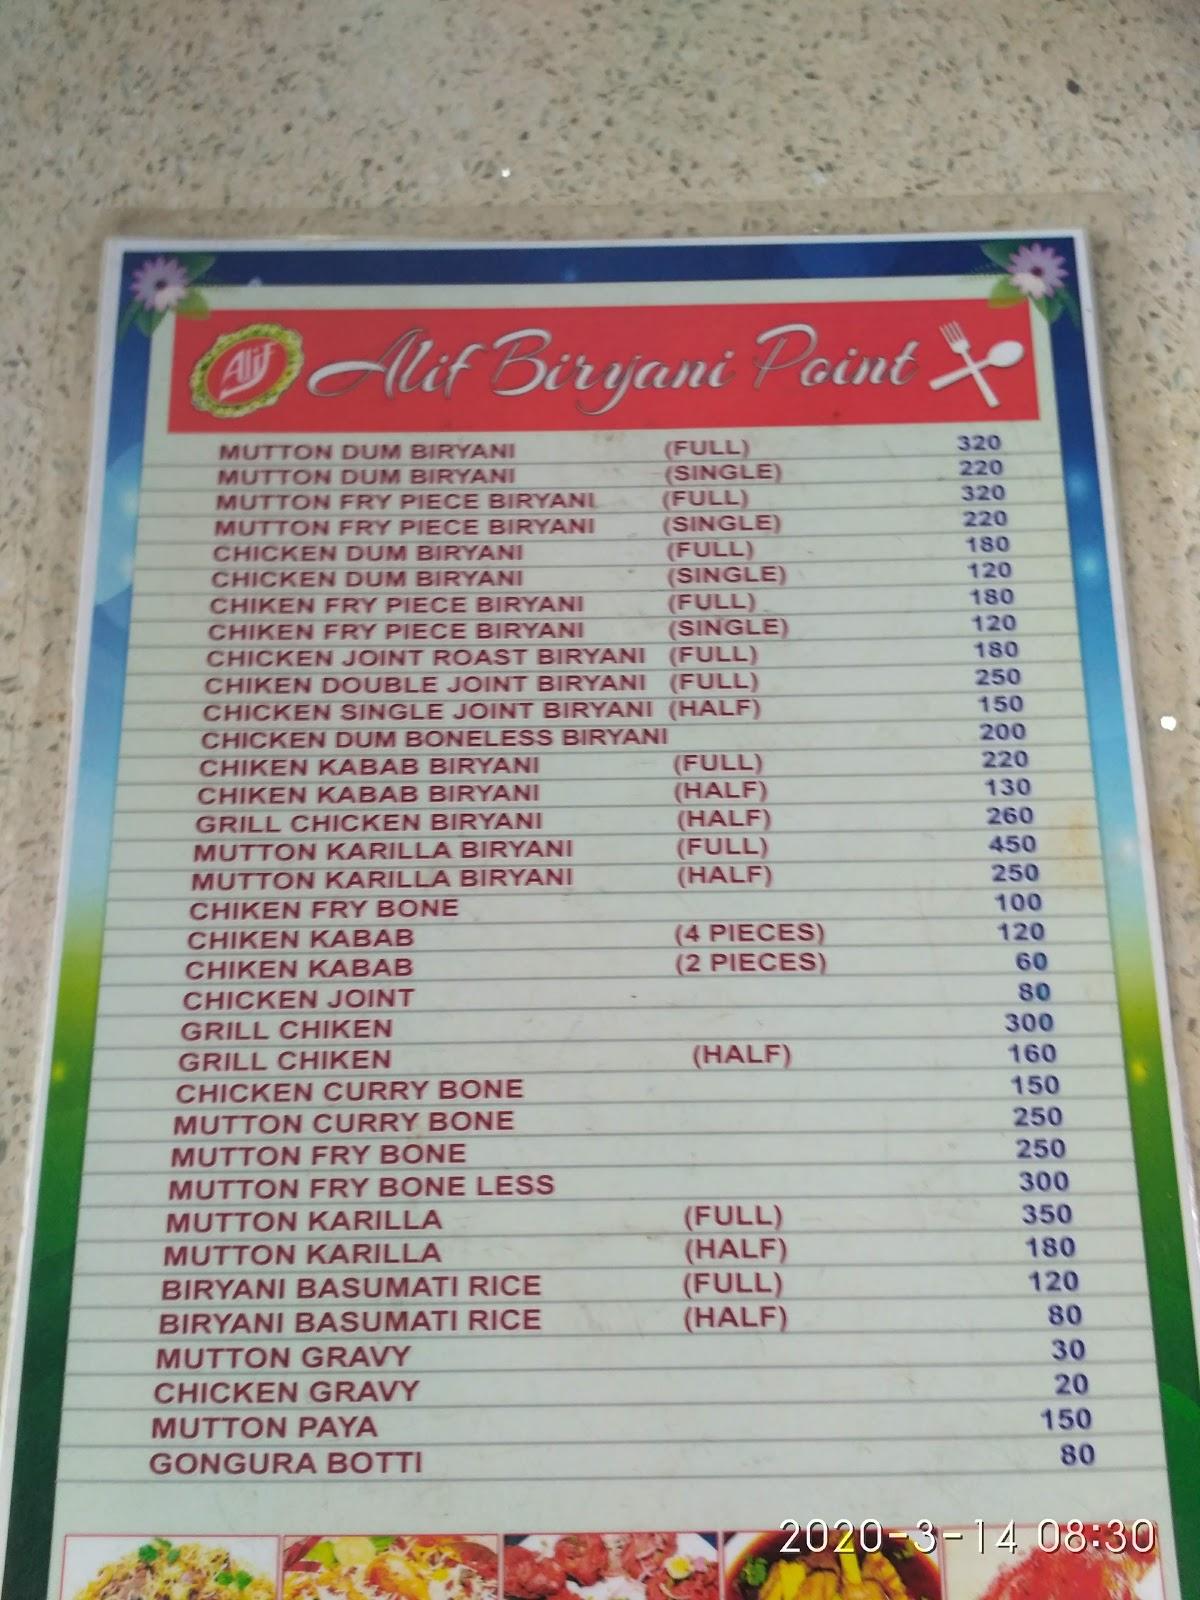 Alif
Alif Biryani Point
MUTTON DUM BIRYANI (FULL) 320
MUTTON DUM BIRYANI (SINGLE) 220
MUTTON FRY PIECE BIRYANI (FULL) 320
MUTTON FRY PIECE BIRYANI (SINGLE) 220
CHICKEN DUM BIRYANI (FULL) 180
CHICKEN DUM BIRYANI (SINGLE) 120
CHIKEN FRY PIECE BIRYANI (FULL) 180
CHIKEN FRY PIECE BIRYANI (SINGLE) 120
CHICKEN JOINT ROAST BIRYANI (FULL) 180
CHIKEN DOUBLE JOINT BIRYANI (FULL) 250
CHICKEN SINGLE JOINT BIRYANI (HALF) 150
CHICKEN DUM BONELESS BIRYANI 200
CHIKEN KABAB BIRYANI (FULL) 220
CHIKEN KABAB BIRYANI (HALF) 130
GRILL CHICKEN BIRYANI (HALF) 260
MUTTON KARILLA BIRYANI (FULL) 450
MUTTON KARILLA BIRYANI (HALF) 250
CHIKEN FRY BONE 100
CHIKEN KABAB (4 PIECES) 120
CHIKEN KABAB (2 PIECES) 60
CHICKEN JOINT 80
GRILL CHIKEN 300
GRILL CHIKEN (HALF) 160
CHICKEN CURRY BONE 150
MUTTON CURRY BONE 250
MUTTON FRY BONE 250
MUTTON FRY BONE LESS 300
MUTTON KARILLA (FULL) 350
MUTTON KARILLA (HALF) 180
BIRYANI BASUMATI RICE (FULL) 120
BIRYANI BASUMATI RICE (HALF) 80
MUTTON GRAVY 30
CHICKEN GRAVY 20
MUTTON PAYA 150
GONGURA BOTTI 80
2020-3-14 08:30